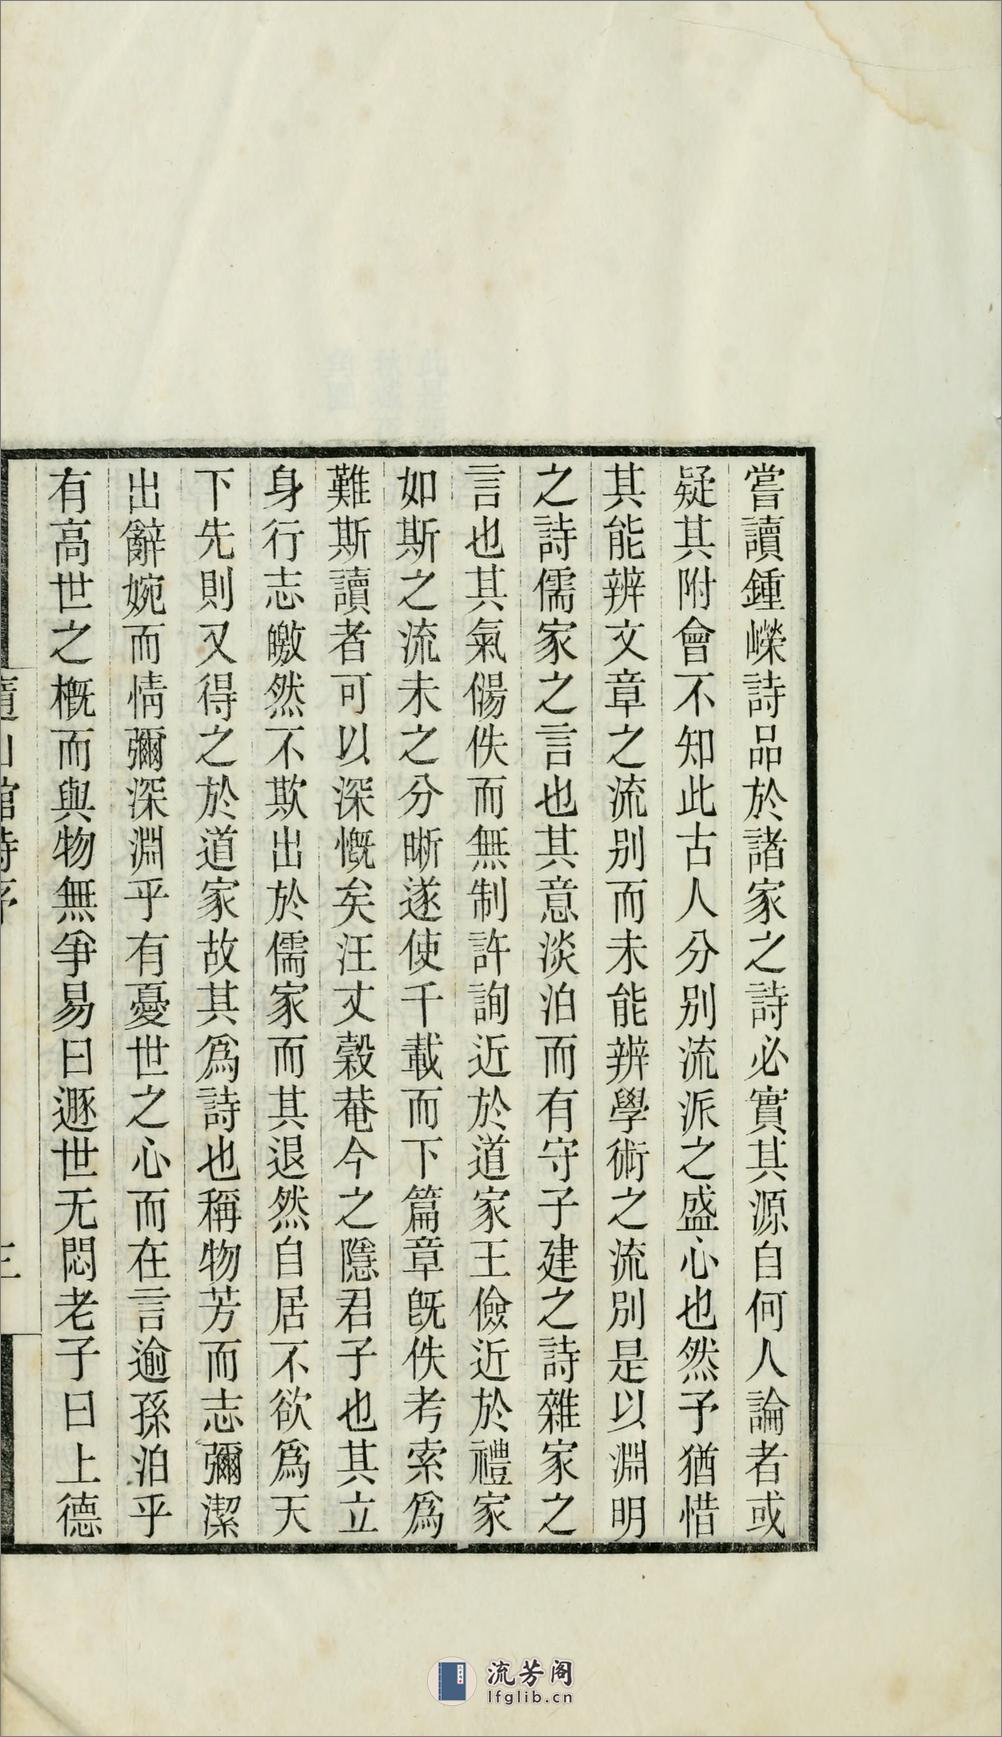 嘗讀鍾嶸詩品於諸家之詩必實其源自何人論者或
疑其附會不知此古人分别流派之盛心也然予猶惜
其能辨文章之流别而未能辨學術之流別是以淵明
之詩儒家之言也其意淡泊而有守子建之詩雜家之
言也其氣傷佚而無制許詢近於道家王儉近於禮家
如斯之流未之分晰遂使千載而下篇章旣佚考索爲
難斯讀者可以深慨矣汪丈穀菴今之隱君子也其立
身行志皦然不欺出於儒家而其退然自居不欲爲天
下先則又得之於道家故其爲詩也稱物芳而志彌潔
出辭婉而情彌深淵乎有憂世之心而在言逾孫泊乎
有高世之概而與物無爭易曰遯世无悶老子曰上德
隨山館詩序
三
流芳阁
lfglib.cn